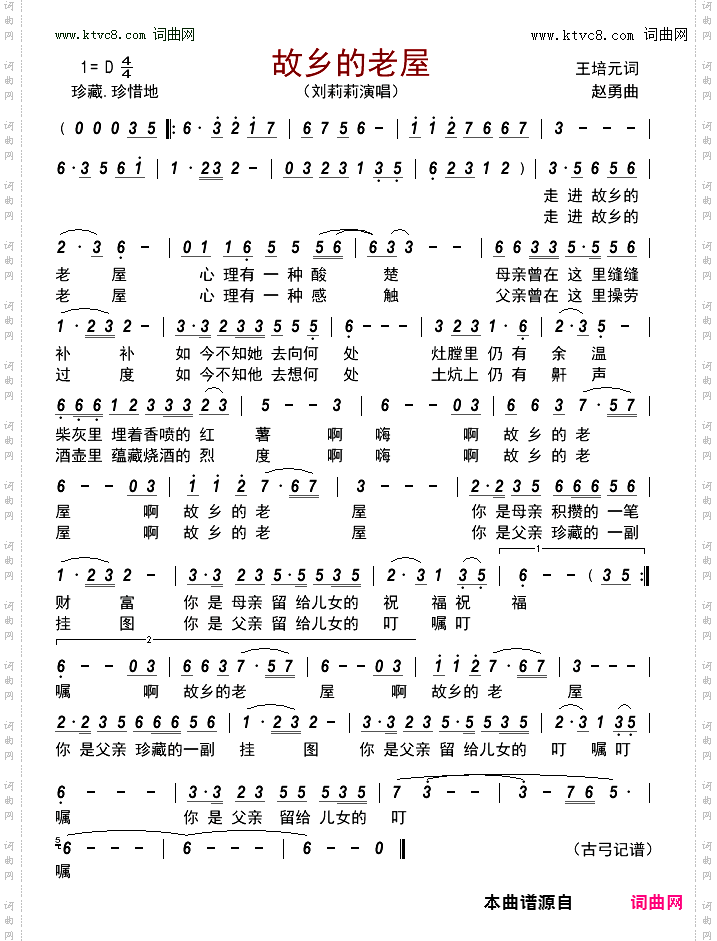 www.ktvc8.com 词曲网
www.ktvc8.com 词曲网
1=D 4/4
故乡的老屋
王培元词
珍藏.珍惜地
（刘莉莉演唱）
赵勇曲
( 0 0 0 3 5 ‖: 6 · 3 2 1 7 | 6 7 5 6 - | 1 1 2 7 6 6 7 | 3 - - - |
6 · 3 5 6 1 | 1 · 2 3 2 - | 0 3 2 3 1 3 5 | 6 2 3 1 2 ) | 3 · 5 6 5 6 |
走 进 故乡的
走 进 故乡的
2 · 3 6 - | 0 1 1 6 5 5 5 6 | 6 3 3 - - | 6 6 3 3 5 · 5 5 6 |
老 屋 心 理有 一 种 酸 楚 母亲曾在 这 里缝缝
老 屋 心 理有 一 种 感 触 父亲曾在 这 里操劳
1 · 2 3 2 - | 3 · 3 2 3 3 5 5 5 | 6 - - - | 3 2 3 1 · 6 | 2 · 3 5 - |
补 补 如 今不知她 去向何 处 灶膛里 仍 有 余 温
过 度 如 今不知他 去想何 处 土炕上 仍 有 鼾 声
6 6 6 1 2 3 3 3 2 3 | 5 - - 3 | 6 - - 0 3 | 6 6 3 7 · 5 7 |
柴灰里 埋着香喷的 红 薯 啊 嗨 啊 故 乡 的 老
酒壶里 蕴藏烧酒的 烈 度 啊 嗨 啊 故 乡 的 老
6 - - 0 3 | 1 1 2 7 · 6 7 | 3 - - - | 2 · 2 3 5 6 6 6 5 6 |
屋 啊 故 乡 的 老 屋 你 是母亲 积攒的 一笔
屋 啊 故 乡 的 老 屋 你 是父亲 珍藏的 一副
1
1 · 2 3 2 - | 3 · 3 2 3 5 · 5 5 3 5 | 2 · 3 1 3 5 | 6 - - ( 3 5 :‖
财 富 你 是 母亲 留 给儿女的 祝 福 祝 福
挂 图 你 是 父亲 留 给儿女的 叮 嘱 叮
2
6 - - 0 3 | 6 6 3 7 · 5 7 | 6 - - 0 3 | 1 1 2 7 · 6 7 | 3 - - - |
嘱 啊 故乡的老 屋 啊 故乡的 老 屋
2 · 2 3 5 6 6 6 5 6 | 1 · 2 3 2 - | 3 · 3 2 3 5 · 5 5 3 5 | 2 · 3 1 3 5 |
你 是父亲 珍藏的一副 挂 图 你 是父亲 留 给儿女的 叮 嘱 叮
6 - - - | 3 · 3 2 3 5 5 5 3 5 | 7 3 - - | 3 - 7 6 5 · |
嘱 你 是 父亲 留给 儿女的 叮
5 6 - - - | 6 - - - | 6 - - 0 ‖
（古弓记谱）
嘱
本曲谱源自 词曲网